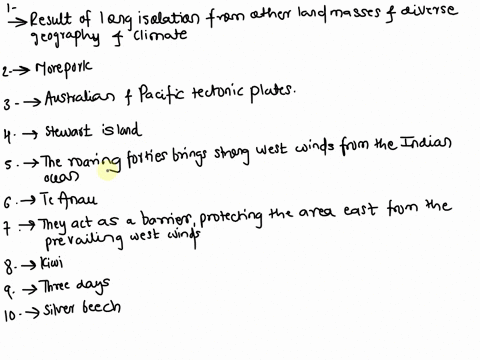 1- → Result of long isolation from other land masses & diverse
geography & climate
2- → Morepork
3- → Australian & Pacific tectonic plates.
4- → Stewart island
5- → The roaring forties brings strong west winds from the Indian
ocean
6- → Te Anau
7- → They act as a barrier, protecting the area east from the
prevailing west winds
8- → Kiwi
9- → Three days
10- → Silver beech